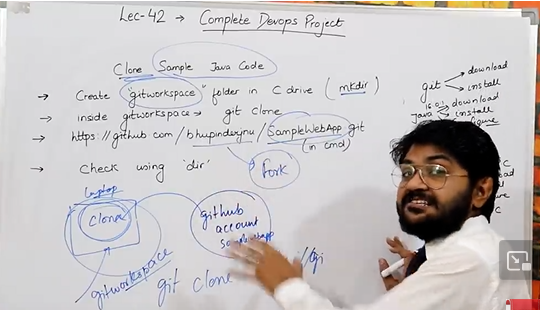 Lec-42 → Complete Devops Project
Clone Sample Java Code
→ Create "gitworkspace" folder in C drive (mkdir)
→ inside gitworkspace → git clone
→ https://github.com/bhupinderjnu/SampleWebApp.git
(in cmd)
→ Check using 'dir'
fork
git → download
→ install
Java → download
→ install
Laptop
Clone
gitworkspace
github
account
git clone